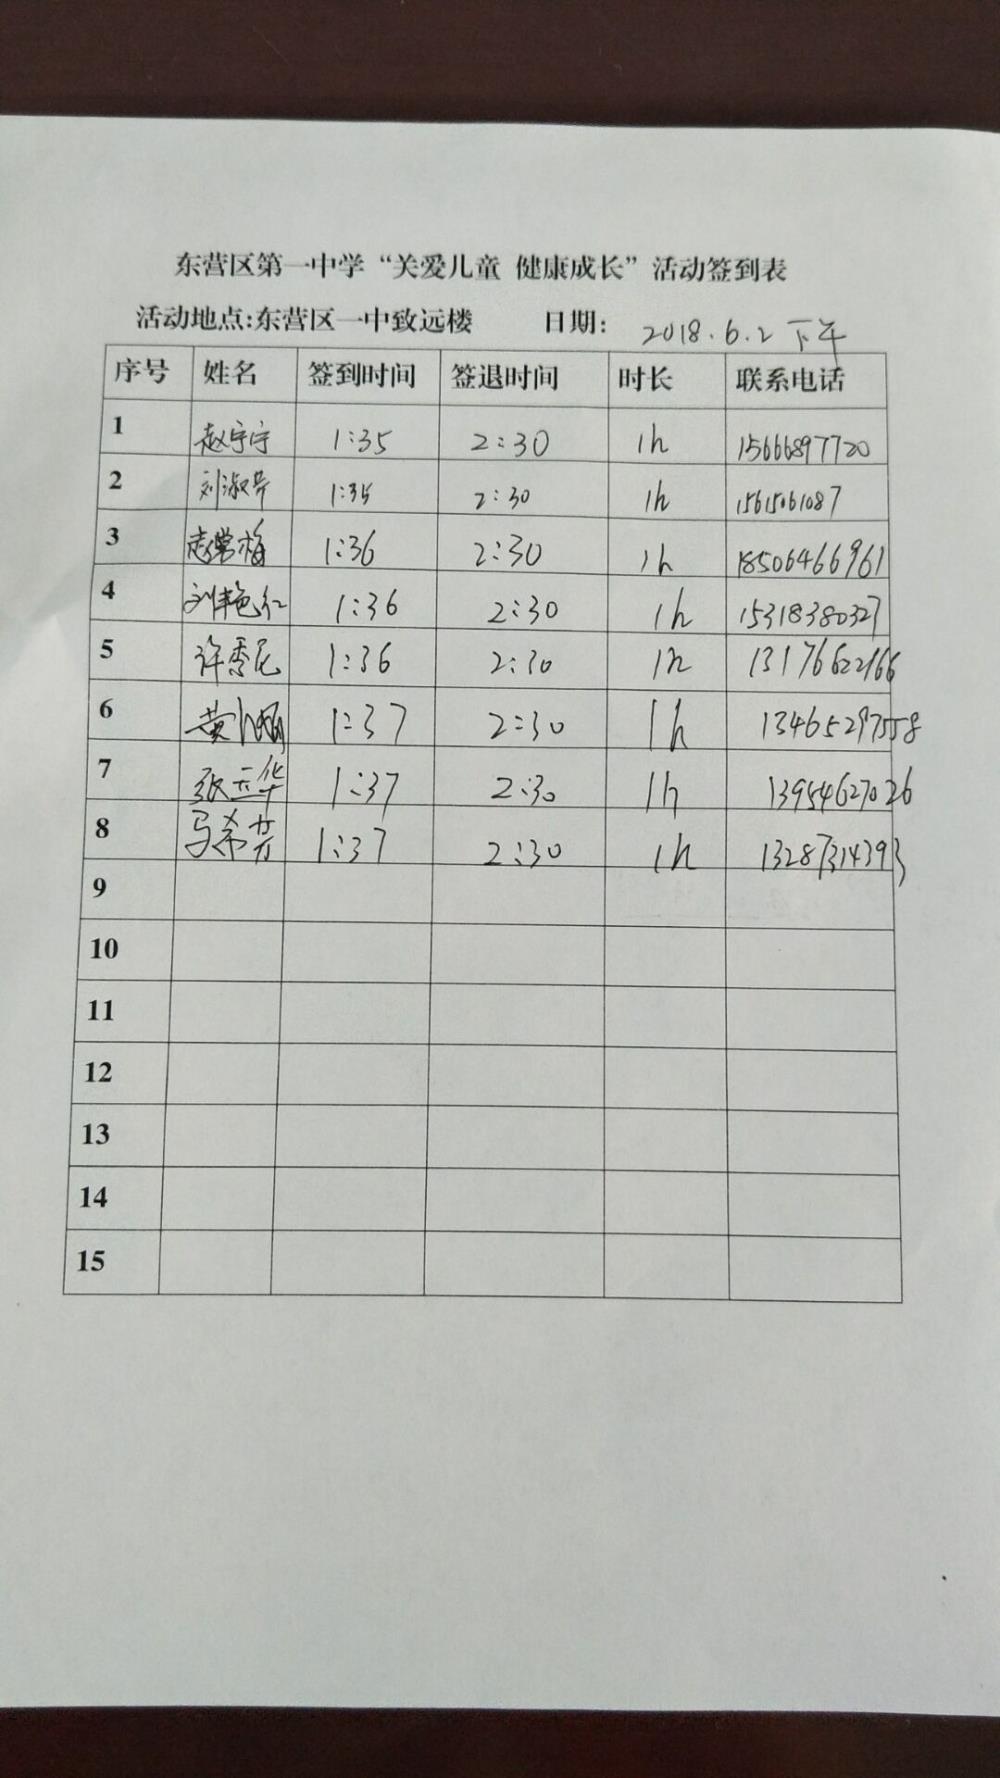 东营区第一中学“关爱儿童 健康成长”活动签到表
活动地点:东营区一中致远楼 日期: 2018.6.2 下午
序号 姓名 签到时间 签退时间 时长 联系电话
1 赵宁宁 1:35 2:30 1h 15666897720
2 刘淑芹 1:35 2:30 1h 15615061087
3 1:36 2:30 1h 18506466961
4 刘艳红 1:36 2:30 1h 15318380327
5 许秀尼 1:36 2:30 1h 13176622166
6 1:37 2:30 1h 13465297558
7 张云华 1:37 2:30 1h 13954627026
8 马希芳 1:37 2:30 1h 13287314393
9
10
11
12
13
14
15